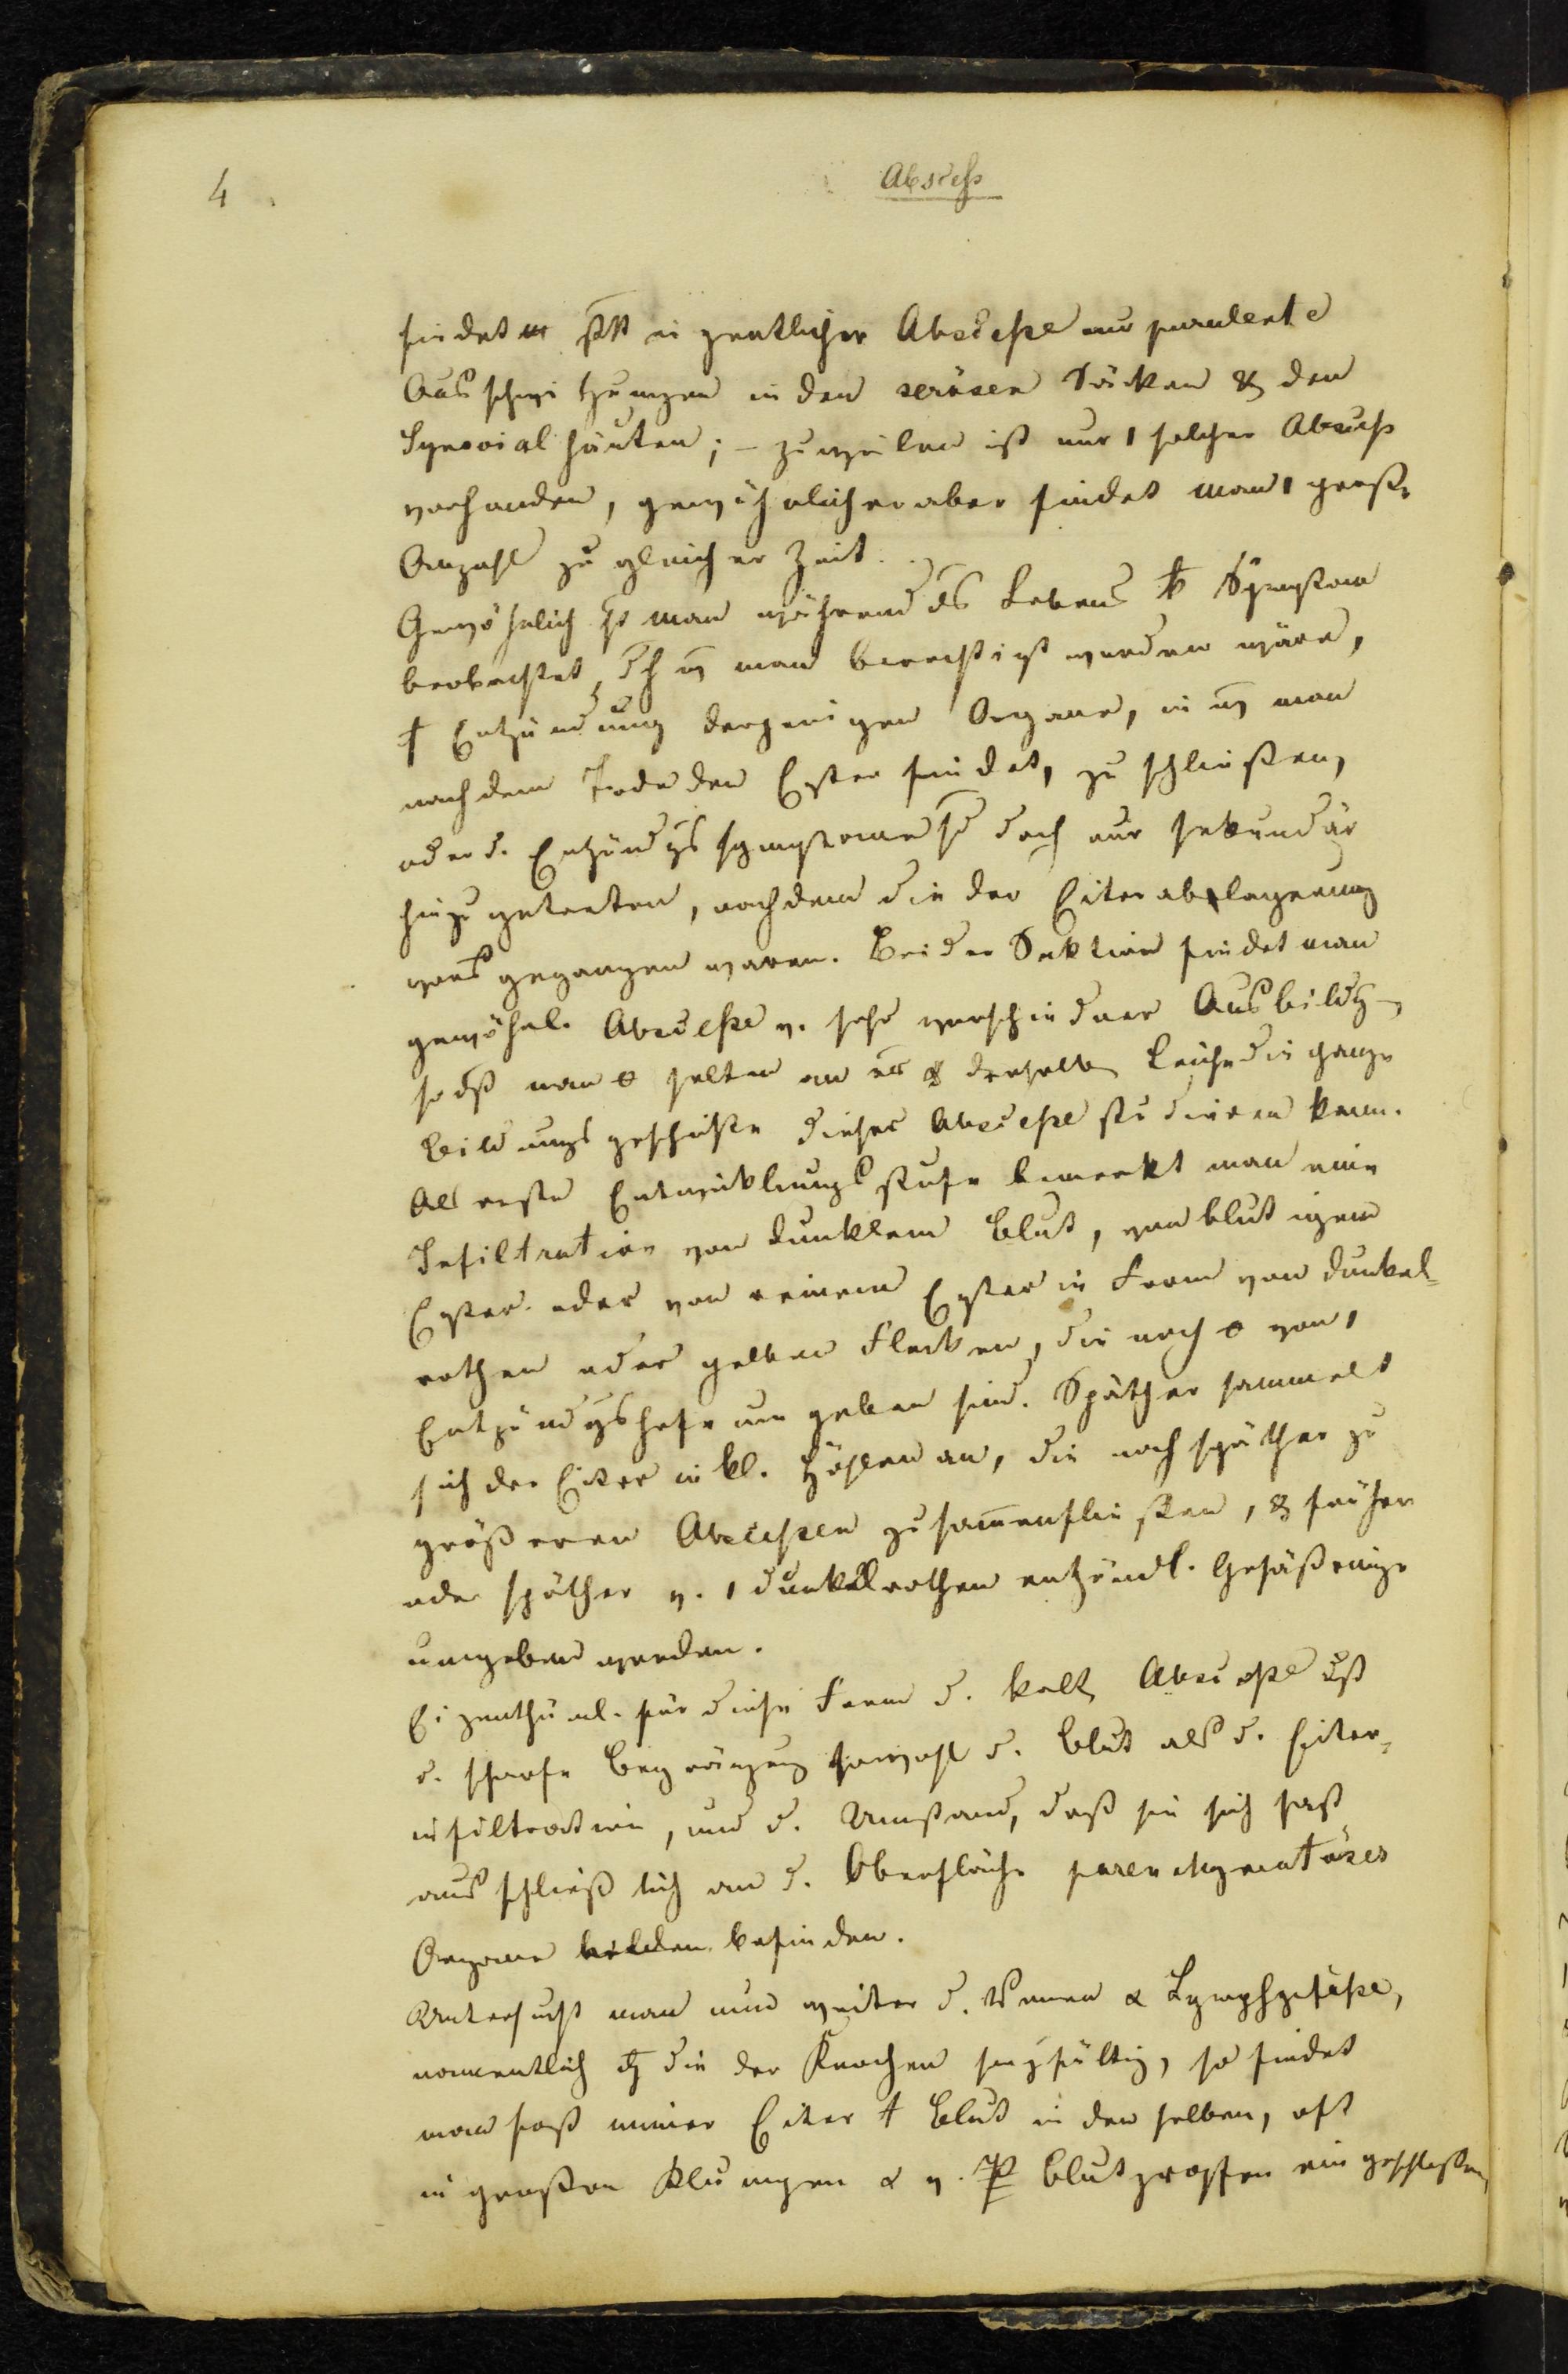 4
Abscess
findet statt eigentlicher Abscesse nur purulente
Ausschwitzungen in den serösen Säcken & den
Synovialhäuten; – zuweilen ist nur 1 solcher Abscess
vorhanden, gewöhnlicher aber findet man 1 große
Anzahl zu gleicher Zeit.
Gewöhnlich man während des Lebens Symptom
beobachtet, man berechtigt worden wäre,
Entzündung derjenigen Organe, in man
nach dem Tode den Eyter findet, zu schließen,
oder d. Entzündgs symptome sd doch nur sekundär
hinzugetreten, nachdem die der Eiterablagerung
vorausgegangen waren. Bei der Sektion findet man
gewöhnl. Abscesse v. sehr verschiedner Ausbildg,
so dß man selten an derselben Leiche die ganze
Bildungsgeschichte dieser Abscesse studieren kann.
Als erste Entwicklungsstufe bemerkt man eine
Infiltration von dunklem Blut, von blutigem
Eyter oder von reinem Eyter in Form von dunkel-
rothen oder gelben Flecken, die noch o von 1
Entzündgshofe umgeben sind. Späther sammelt
sich der Eiter in kl. Höhlen an, die noch späther zu
größeren Abscessen zusamenfließen, & früher
oder späther v. 1 dunkelrothen entzündl. Gefäßringe
umgeben werden.
Eigenthüml. für diese Form d. kalt Abscesse ist
d. scharfe Begränzung sowohl d. Blut als d. Eiter-
infiltration, und d. Umstand, daß sie sich fast
ausschließlich an d. Oberfläche parenchymatöser
Organe bilden befinden.
Untersucht man nun weiter d. Venen & Lymphgefäße,
namentlich die der Knochen sorgfältig, so findet
man fast immer Eiter † Blut in denselben, oft
in großen Klumpen & v. Blutpropfen eingeschlossen,